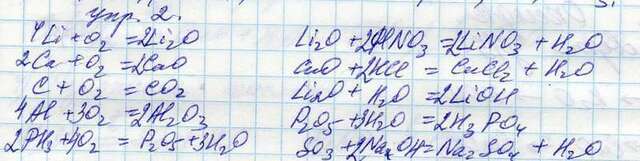 упр. 2.
4Li + O₂ = 2Li₂O
2Ca + O₂ = 2CaO
C + O₂ = CO₂
4Al + 3O₂ = 2Al₂O₃
2PH₃ + 4O₂ = P₂O₅ + 3H₂O
Li₂O + 2HNO₃ = 2LiNO₃ + H₂O
CuO + 2HCl = CuCl₂ + H₂O
Li₂O + H₂O = 2LiOH
P₂O₅ + 3H₂O = 2H₃PO₄
SO₃ + 2NaOH = Na₂SO₄ + H₂O